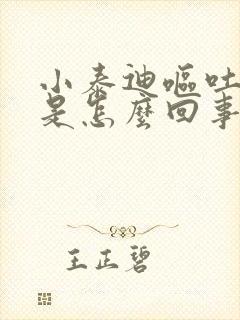 小泰迪嘔吐
是怎麼回事
王正碧